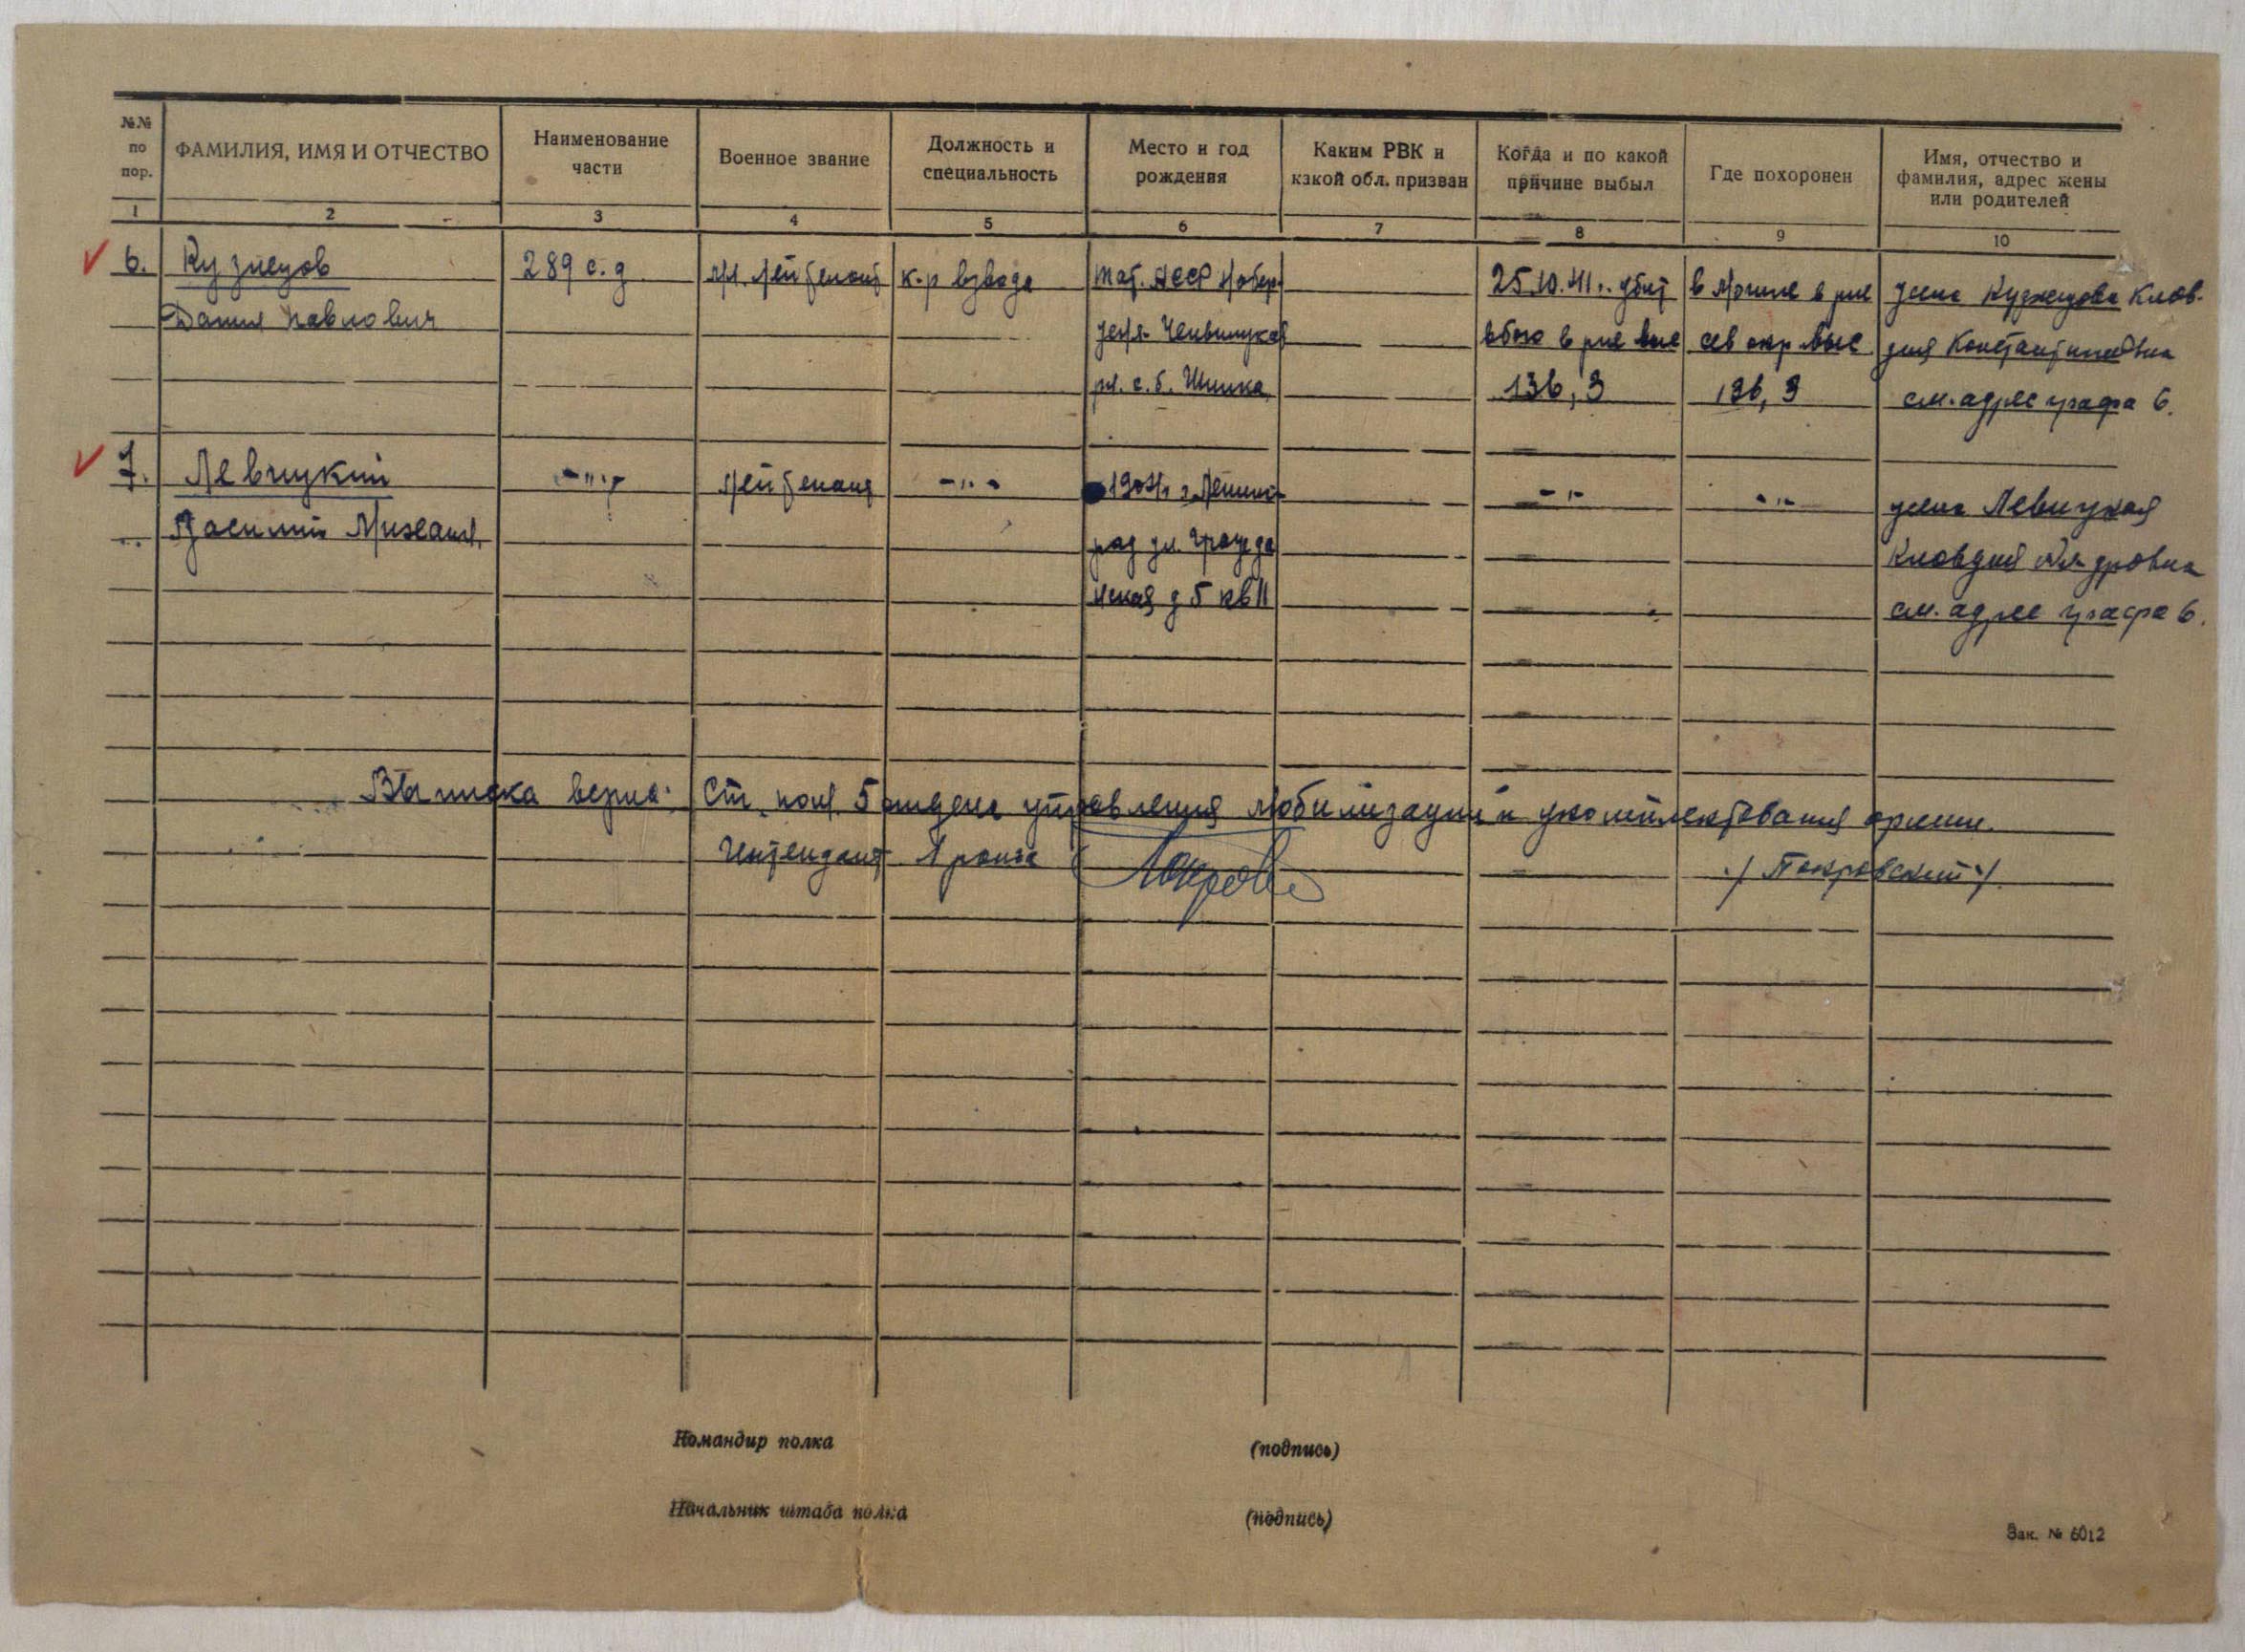 №№ по пор.
ФАМИЛИЯ, ИМЯ И ОТЧЕСТВО
Наименование части
Военное звание
Должность и специальность
Место и год рождения
Каким РВК и какой обл. призван
Когда и по какой причине выбыл
Где похоронен
Имя, отчество и фамилия, адрес жены или родителей
1 2 3 4 5 6 7 8 9 10
6. Кузнецов 289 с.д. мл. лейтенант к-р взвода Тат. АССР 25.10.41г. убит в могиле в р-не жена Кузнецова Клав-
Данил Павлович в бою в р-не выс сев окр. выс дия Константиновна
р-н. с. б. Шинка 136,3 136,3 см. адрес графа 6.
7. Левицкий -"- лейтенант -"- г. Ленин- -"- -"- жена Левицкая
Василий Михайл. град ул. Гражда Клавдия
нская д 5 кв 11 см. адрес графа 6.
Выписка верна: Ст. пом. 5 отдела управления мобилизации и укомплектования армии.
Интендант 1 ранга /Покровский/
Командир полка (подпись)
Начальник штаба полка (подпись)
Зак. № 6012